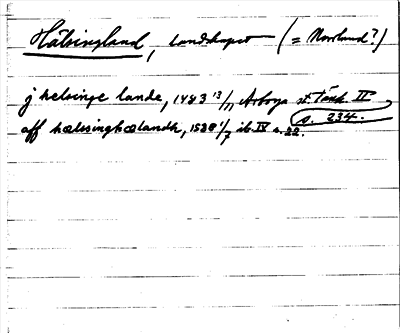 Hälsingland, landskapet (= Norrland?)
j helsinge lande, 1483 13/11 Arboga st. Tänk. II
s. 234.
aff hælssinghælandh, 1520 1/7 ib. IV s. 22.